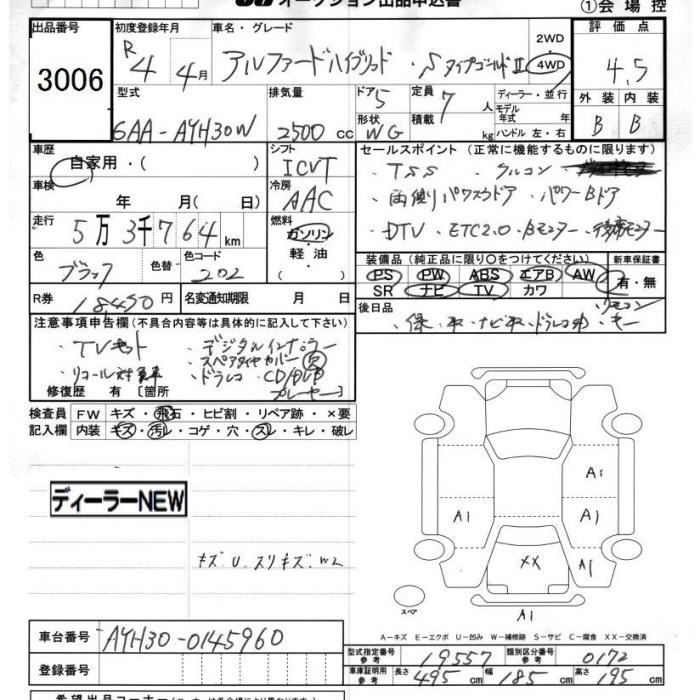 オークション出品申込書
①会場控
出品番号
3006
初度登録年月
R4 4月
車名・グレード
アルファードハイブリッド・Sタイプゴールド II
2WD
4WD
評価点
4.5
外装 内装
B B
型式
6AA-AYH30W
排気量
2500cc
ドア 5
形状 WG
定員 7人
積載 kg
ディーラー・並行
モデル年式 年式
ハンドル 左・右
車歴
自家用・( )
シフト
ICVT
セールスポイント (正常に機能するものに限ります)
・TSS ・クルコン
・両側パワスラドア ・パワーBドア
・DTV ・ETC2.0 ・Bモニター ・後席モニター
車検
年 月(日)
冷房
AAC
走行
5万3千764km
燃料
ガソリン
軽油
( )
色
ブラック
色替
色コード
202
装備品 (純正品に限り○をつけてください)
PS PW ABS エアB AW
SR ナビ TV カワ
新車保証書
有・無
R券
18,450円
名変通知期限 月 日
後日品
・保・取・ナビ取・ドラレコ取・リモコンキー
注意事項申告欄 (不具合内容等は具体的に記入して下さい)
・TVキット ・デジタルインナーミラー
・スペアタイヤカバー欠
・リコール対象車 ・ドラレコ ・CD/DVDプレーヤー
修復歴 有 [箇所
検査員 FW キズ・飛石・ヒビ割・リペア跡・×要
記入欄 内装 キズ・汚レ・コゲ・穴・スレ・キレ・破レ
ディーラーNEW
キズU スリキズ W2
A1
A1 A1
XX A1
スペア
A1
A-キズ E-エクボ U-凹み W-補修跡 S-サビ C-腐食 XX-交換済
車台番号
AYH30-0145960
登録番号
型式指定番号 参考 19557 類別区分番号 参考 0172
車庫証明用 参考 長さ 495cm 幅 185cm 高さ 195cm
希望出品コーナー